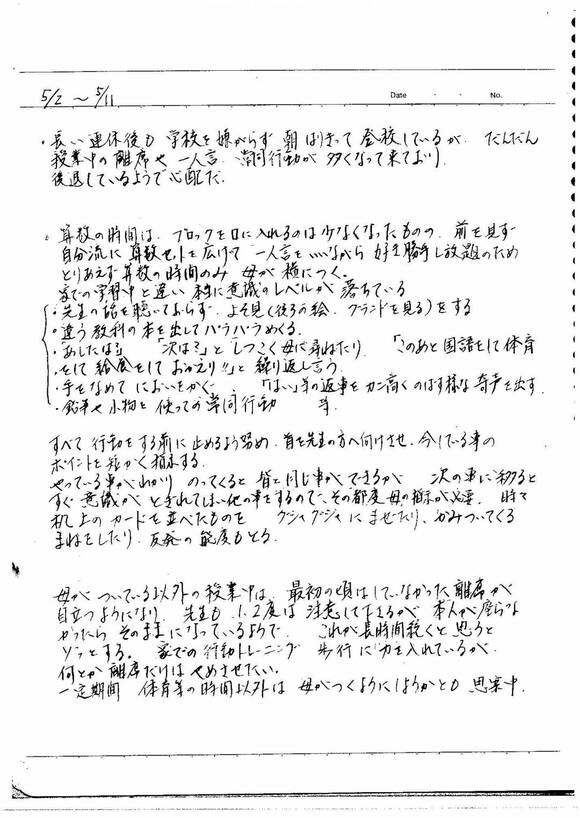 5/2 ~ 5/11
Date ・ ・ No.
・長い連休後も 学校を嫌がらず 朝はりきって 登校しているが、だんだん
授業中の離席や 一人言、常同行動が 多くなって来ており、
後退しているようで心配だ。
・算数の時間は、ブロックを口に入れるのは少なくなったものの、前を見ず
自分流に 算数セットを広げて 一人言を いいながら 好き勝手し放題のため
とりあえず算数の時間のみ 母が横につく。
家での学習中と違い 本当に意識のレベルが 落ちている
・先生の話を聴いておらず、よそ見(後ろの絵、グランドを見る)をする
・違う教科の本を出してパラパラめくる。
・あしたは? 「次は?」と しつこく母に尋ねたり、「このあと国語をして体育
をして 給食をして おかえり!!」と 繰り返し言う
・手をなめて においをかぐ。 ・「はい」等の返事を カン高く のばす様な 奇声を出す。
・鉛筆や小物を 使っての常同行動 等
すべて 行動をする前に 止めるよう努め、首を先生の方へ向けさせ、今している事の
ポイントを短かく指示する。
やっている事がわかり のってくると 皆と同じ事ができるが 次の事に移ると
すぐ 意識が とぎれてしまい他の事をするので、その都度 母の指示が必要。 時々
机上のカードを並べたものを グシャグシャに まぜたり、かみついてくる
まねをしたり、反発の態度もとる。
母が ついている以外の授業中は、最初の頃はしていなかった離席が
目立つようになり、先生も 1.2度は 注意して下さるが 本人が座らな
かったら そのままになっているようで、これが長時間続くと思うと
ゾッとする。 家での行動トレーニング 歩行に力を入れているが、
何とか離席だけは やめさせたい。
一定期間 体育等の時間以外は 母がつくようにしようかとも 思案中。